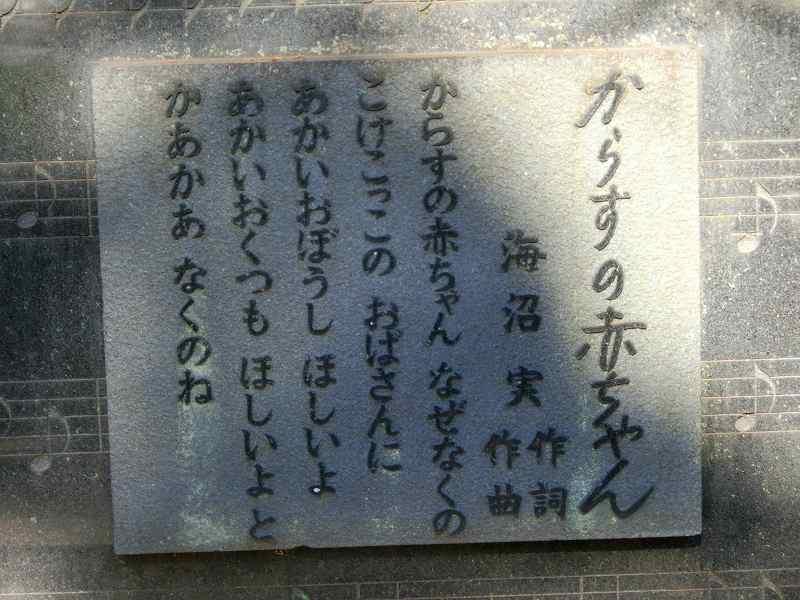 からすの赤ちゃん
海沼 実 作詞
作曲
からすの赤ちゃん なぜなくの
こけこっこの おばさんに
あかいおぼうし ほしいよ
あかいおくつも ほしいよ と
かあかあ なくのね